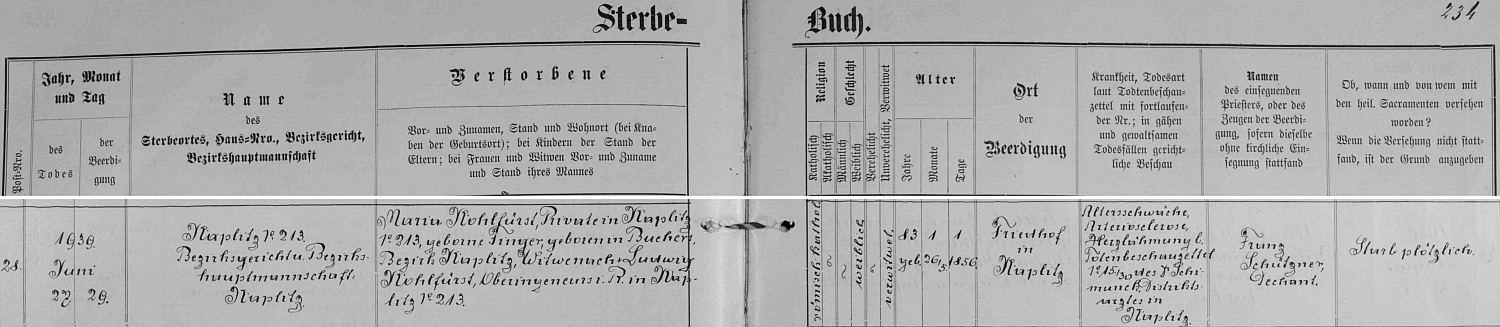 Sterbe-
Buch.
234
Post-Nro.
Jahr, Monat
und Tag
des
Todes
der
Beerdi-
gung
Name
des
Sterbeortes, Haus-Nro., Bezirksgericht,
Bezirkshauptmannschaft
Verstorbene
Vor- und Zunamen, Stand und Wohnort (bei Kna-
ben der Geburtsort); bei Kindern der Stand der
Eltern; bei Frauen und Witwen Vor- und Zuname
und Stand ihres Mannes
Religion
Katholisch
Akatholisch
Geschlecht
Männlich
Weiblich
Verehelicht
Unverehelicht, Verwitwet
Alter
Jahre
Monate
Tage
Ort
der
Beerdigung
Krankheit, Todesart
laut Todtenbeschau-
zettel mit fortlaufen-
der Nr.; in gähen
und gewaltsamen
Todesfällen gericht-
liche Beschau
Namen
des einsegnenden
Priesters, oder des
Zeugen der Beerdi-
gung, sofern dieselbe
ohne kirchliche Ein-
segnung stattfand
Ob, wann und von wem mit
den heil. Sacramenten versehen
worden?
Wenn die Versehung nicht statt-
fand, ist der Grund anzugeben
28.
1939.
Juni
27. 29.
Kaplitz No 213.
Bezirksgericht u. Bezirks-
hauptmannschaft
Kaplitz
Maria Kohlfürst, Private in Kaplitz
No 213, geborne Finger, geboren in Buchers,
Bezirk Kaplitz, Witwe nach Ludwig
Kohlfürst, Oberingeneur i. R. in Kap-
litz No 213.
römisch kathol.
weiblich
verwitwet
83 1 1
geb. 26/5. 1856.
Friedhof
in
Kaplitz
Altersschwäche,
Arteriosclerose,
Herzlähmung l.
Totenbeschauzettel
No 15/30 des Dr Schi-
munek, Distrikts-
arztes in
Kaplitz.
Franz
Schützner,
Dechant.
Starb plötzlich.